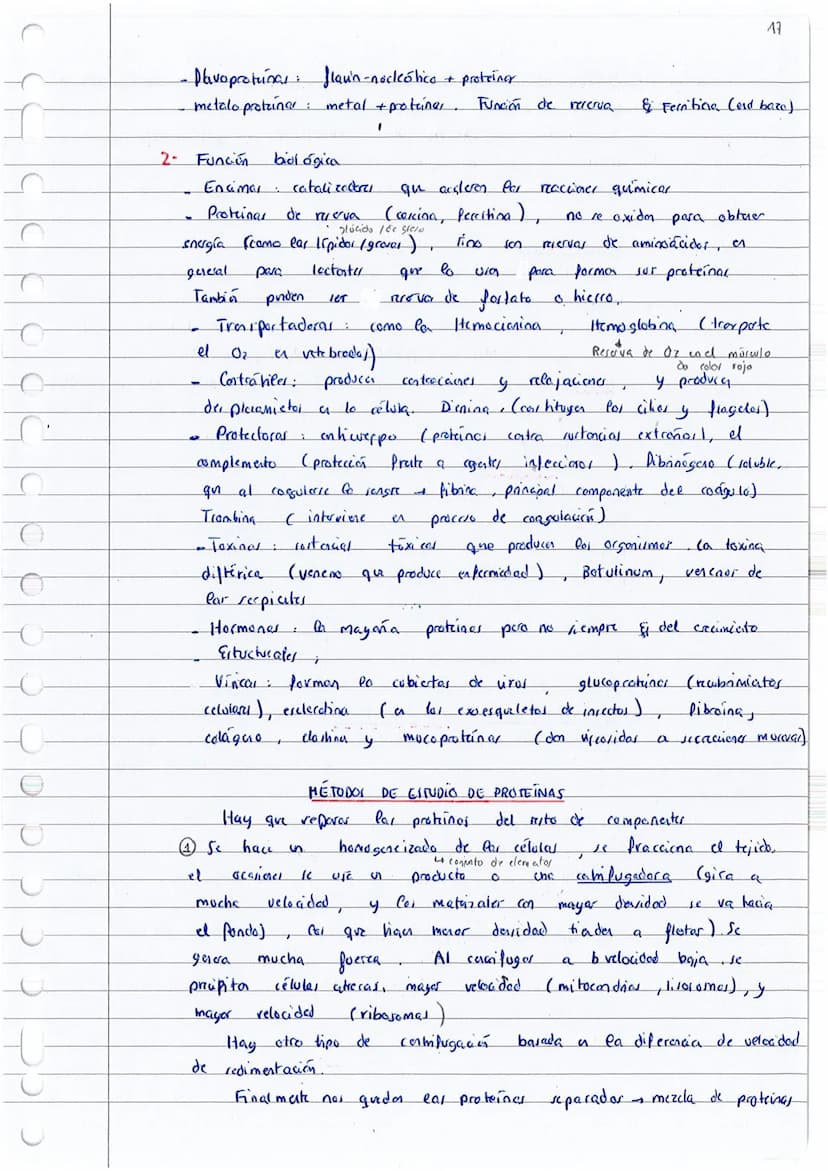 17
- Flavoproteínas : flavin-nucleótico + proteínas
- metaloproteínas : metal + proteínas. Función de reserva Ej Ferritina (
2- Función biológica
- Enzimas : catalizadores que aceleran las reacciones químicas
- Proteínas de reserva (caseína, ferritina), no se oxidan para obtener
glúcidos
energía (como los lípidos (grasas), sino son reservas de aminoácidos, en
general para lactantes que lo usan para formar sus proteínas
También pueden ser reservas de fosfato o hierro.
- Transportadoras : como la Hemocianina, Hemoglobina (transporte
el O2 en vertebrados)
Reserva de O2 en el músculo
Do color rojo
- Contráctiles : producen contracciones y relajaciones, y producen
desplazamientos en la célula. Dineína, (constituyen los cilios y flagelos)
- Protectoras : anticuerpo (proteínas contra sustancias extrañas), el
complemento (protección frente a agentes infecciosos). Fibrinógeno (soluble,
que al coagularse la sangre → fibrina, principal componente del coágulo)
Trombina (interviene en proceso de coagulación)
- Toxinas : sustancias tóxicas que producen los organismos. La toxina
diftérica (veneno que produce enfermedad), Botulinum, venenos de
las serpientes
- Hormonas : la mayoría proteínas pero no siempre Ej del crecimiento
- Estructurales ;
Víricas : forman la cubiertas de virus, glucoproteínas (recubrimientos
celulares), esclerotina (en los exoesqueletos de insectos), fibroína,
colágeno, elastina y mucoproteínas (dan viscosidas a secreciones mucosas)
MÉTODOS DE ESTUDIO DE PROTEÍNAS
Hay que separar las proteínas del resto de componentes
① Se hace un homogeneizado de las células, se fracciona el tejido,
↳ conjunto de elementos
el ocasiones se usa un producto o una centrifugadora (gira a
mucha velocidad, y los materiales con mayor densidad se va hacia
el fondo), los que tienen menor densidad tienden a flotar). Se
genera mucha fuerza. Al centrifugar a b velocidad baja, se
precipita células enteras, mayor velocidad (mitocondrias, lisosomas), y
mayor velocidad (ribosomas)
Hay otro tipo de centrifugación basada en la diferencia de velocidad
de sedimentación.
Finalmente nos quedan las proteínas separadas → mezcla de proteínas